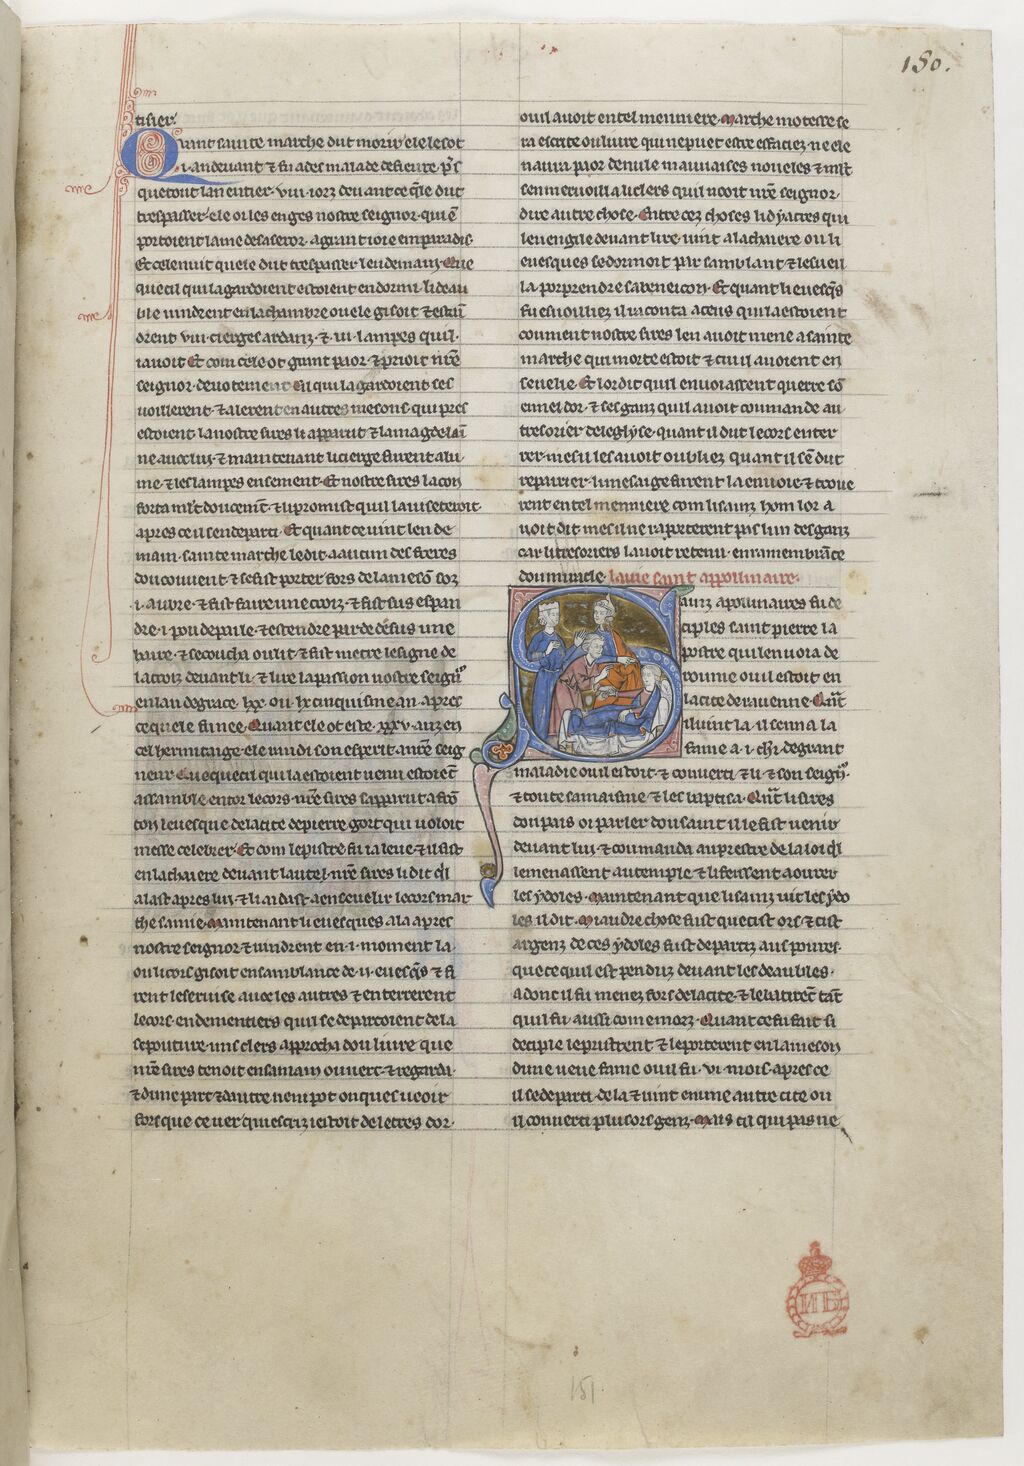 150.
tisier.
Quant sainte marthe dut morir ele le sot
.i. an devant & fu ades malade de fievre p̃s
que tout lan entier. viii iorz devant ce q̃le dut
trespasser. ele oi les enges nostre seignor. qui ẽ
portoient lame de sa seror. a grant ioie en paradis.
Et cele nuit quele dut trespasser lendemain. Que
que cil qui la gardoient estoient endormi. li deau
ble vindrent en la chambre ou ele gisoit & estai
drent vii. cierges ardanz. & .iii. lampes quil.
i avoit Et com cele ot grant paor. & prioit nr̃e
seignor. devotement Cil qui la gardoient ses
voillerent. & alerent en autres mesons. qui pres
estoient. la nostre sires li apparut & la magdelai
ne avec lui. & maintenant li cierge furent alu
me. & les lampes ensement. Et nostre sires la con
forta ml̃t doucem̃t. & li promist quil la viseteroit.
apres ce il sen departi. Et quant ce vint lende
main. sainte marthe le dit a aucun des freres
dou couvent. & se fist porter fors de la mesõ soz
.i. arbre. & fist faire une croiz. & fist sus espan
dre .i. pou de paile. & estendre par de desus une
haire. & se coucha ou lit & fist metre le signe de
la croiz devant li. & lire la passion nostre seign̄
en lan de grace. lxx. ou lx cinquisme an. apres
ce quele fu nee. Quant ele ot este. xxxv. anz en
cel hermitaige. ele rendi son esperit. a nr̃e seig
neur Que que cil qui la estoient venu estoiẽt
assamble entor le cors. nr̃e sires sapparut a frõ
ton levesque de la cite de pierre gort qui voloit
messe celebrer. Et com lepistre fu ia leue. & il fust
en la chaiere devant lautel. nr̃e sires li dit q̃l
alast apres lui. & li aidast. a ensevelir le cors mar
the samie. Maintenant li evesques ala apres
nostre seignor & vindrent en .i. moment la.
ou li cors gisoit en samblance de .ii. evesq̃s & fi
rent le servise avec les autres & enterrerent
le cors. endementiers quil se departoient de la
sepouture. uns clers approcha dou livre que
nr̃e sires tenoit en sa main ouvert. & regarda.
& dune part & dautre ne ni pot onques veoir
fors que ce ver qui escriz i estoit de letres dor.
ou il avoit en tel menniere. Marthe mo teste se
ra escrite ou livre qui ne puet estre effaciez. ne ele
naura paor de nule mauvaises noveles & ml̃t
senmervoilla li clers quil nooit nr̃e seignor.
dire autre chose. Entre cez choses li dyacres qui
levengile devant lire. vint a la chaiere ou li
evesques se dormoit par samblant & lesveil
la por prendre sa beneicon. Et quant li evesq̃s
fu esvoilliez il raconta a ceus qui la estoient
comment nostre sires len avoit mene a sainte
marthe qui morte estoit & cui il avoient en
sevelie. Et lor dit quil envoiassent querre sõ
ennel dor. & ses ganz quil avoit coumande au
tresorier de leglyse. quant il dut le cors enter
rer. mes il les avoit oubliez quant il sẽ dut
repairier. li mesaige furent la envoie. & trove
rent en tel menniere com li sainz hom lor a
voit dit mes il ne raporterent pas lun des ganz
car li tresoriers lavoit retenu. en ramembrãce
dou miracle. la vie saint appollinaire.
Sainz apolinaires fu de
ciples saint pierre la
postre qui lenvoia de
roume ou il estoit en
la cite de ravenne. Q̃nt
il vint la. il senna la
fame a .i. ch̃r. de grant
maladie ou il estoit. & converti & li. & son seign̄.
& toute sa maisnie. & les baptisa. Q̃nt li sires
dou pais oi parler dou saint il le fist venir
devant lui. & coumanda au prestre de la loi q̃l
lemenassent au temple. & li feissent aourer
les ydoles. Maintenant que li sainz vit les ydo
les il dit. Miaudre chose fust que cist ors. & cist
argenz de ces ydoles fust departiz aus povres.
que ce quil est penduz devant les deaubles.
Adonc il fu menez fors de la cite. & le batirẽt tãt
quil fu aussi com e morz. Quant ce fu fait si
deciple le pristrent & le porterent en la meson
dune veve fame ou il fu .vi. mois. apres ce
il se departi de la & vint en une autre cite ou
il converti plusors genz. Mais cil qui pas ne
ИПБ
151